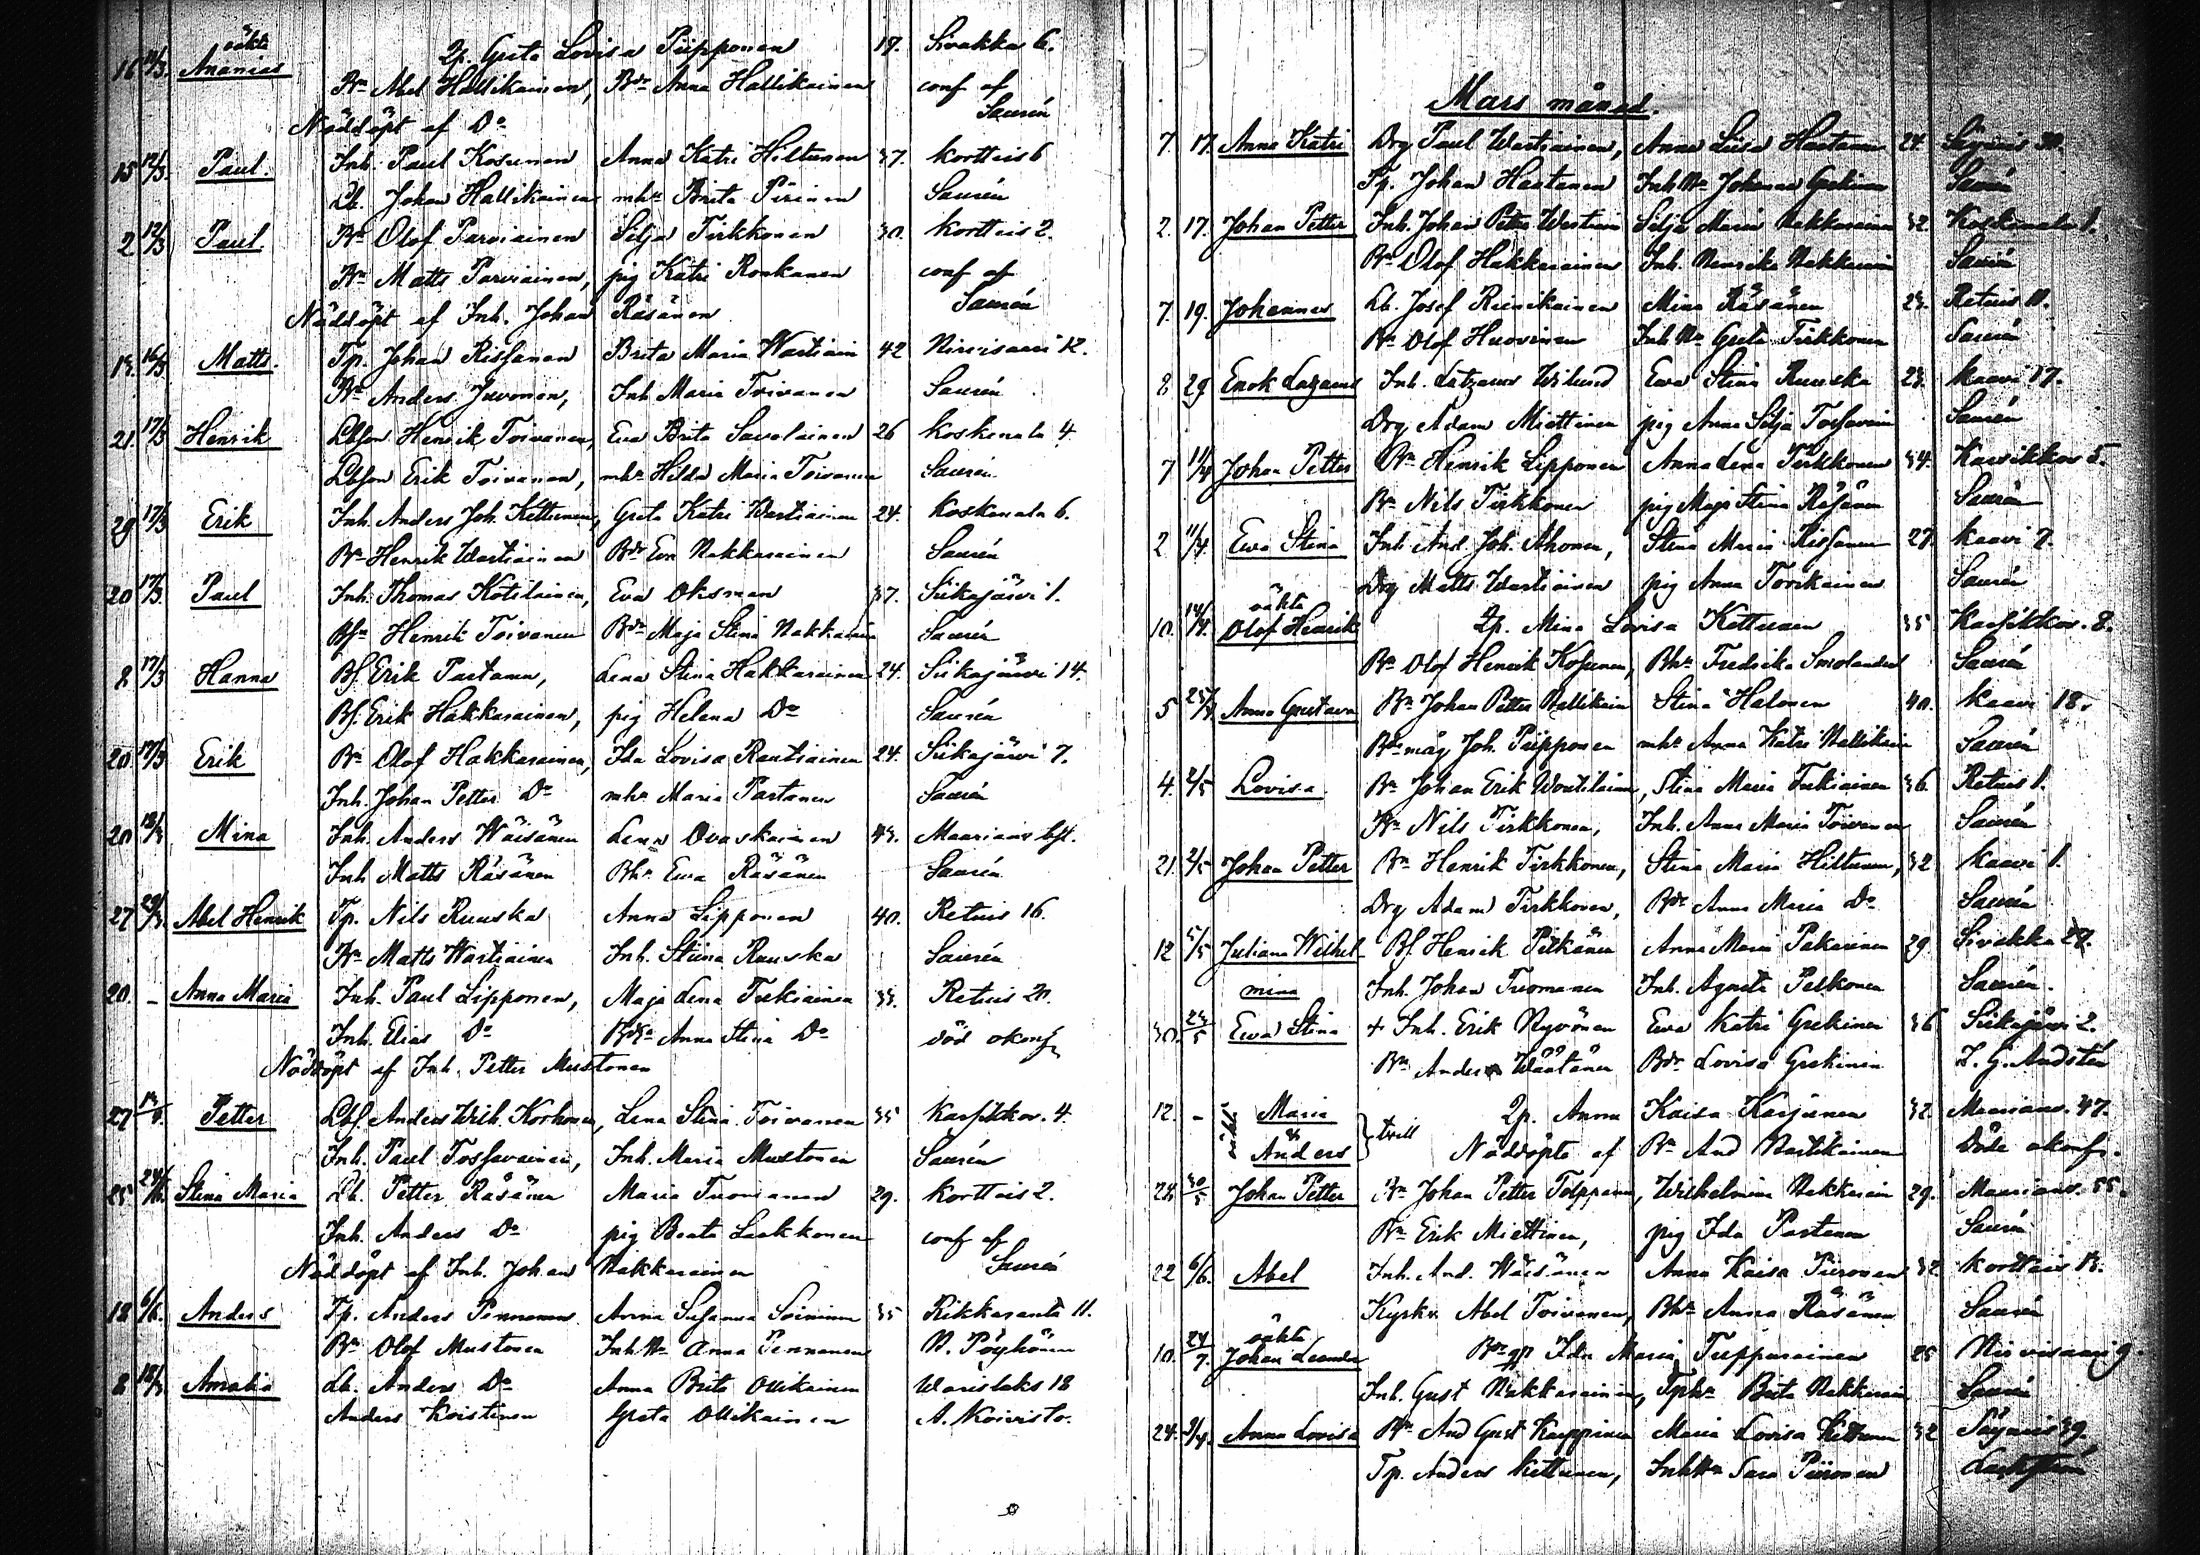 oäkta 2p. Greta Lovisa Piipponen 19. Sivakka 6.
16 Ananias
Bn Abel Hallikainen, Bdr Anna Hallikainen conf af
Nöddöpt af Do Saurén
15 12/3 Paul. Inh. Paul Kosunen Anna Katri Hiltunen 37. Kortteis 6
Lb. Johan Hallikainen mhu Brita Piirinen Saurén
2 12/3 Paul Bn Olof Parviainen Silja Tirkkonen 30. Kortteis 2.
Bn Matts Parviainen, pig Katri Ronkanen conf af
Nöddöpt af Inh. Johan Räsänen Saurén
13. 16/3 Matts. Tp. Johan Rissanen Brita Maria Wartiain 42 Niinisaari 12.
Bn Anders Juvonen, Inh Maria Toivanen Saurén
21. 17/3 Henrik Lbson Henrik Toivanen, Eva Brita Savolainen 26 Koskenala 4.
Lbson Erik Toivanen, mhu Hilda Maria Toivanen Saurén
29 17/3 Erik Inh. Anders Joh. Kettunen, Greta Katri Wartiainen 24. Koskenala 6.
Bn Henrik Wartiainen Bdr Eva Hakkarainen Saurén
20 17/3 Paul Inh. Thomas Kotilainen, Eva Oksman 37. Siikajärvi 1.
Henrik Toivanen Bdr Maja Stina Hakkarain Saurén
8 17/3 Hanna Bf. Erik Partanen, Lena Stina Hakkarainen 24. Siikajärvi 14.
Bf. Erik Hakkarainen, pig Helena Do Saurén
20. 17/3 Erik Bn Olof Hakkarainen, Ida Lovisa Rautiainen 24. Siikajärvi 7.
Inh. Johan Petter Do mhu Maria Partanen Saurén
20 18/3 Mina Inh. Anders Wäisänen Lena Ovaskainen 43. Maarians bst.
Inh Matts Räsänen Bhu Ewa Räsänen Saurén
27 Abel Henrik Tp. Nils Ruuska Anna Lipponen 40. Retuis 16.
Bn Matts Wartiainen Inh. Stina Ruuska Saurén
20. - Anna Maria Inh. Paul Lipponen, Maja Lena Tukiainen 33. Retuis
Inh. Elias Do Anna Stina Do död okonf
Nöddöpt af Inh. Petter Mustonen
27 Petter Lbf. Anders Wilh. Korhonen, Lena Stina Toivanen 35 Karsikkov. 4.
Inh. Paul Tossavainen, Inh. Maria Mustonen Saurén
25 Stina Maria Lb. Petter Räsänen Maria Tuomanen 29. Kortteis 2.
Inh. Anders Do pig Beata Laakkonen conf af
Nöddöpt af Inh. Johan Hakkarainen Saurén
18 6/6. Anders Tp. Anders Pennanen Anna Susanna Soininen 35 Rikkaranta 11.
Bn Olof Mustonen Inh Anna Pennanen N. Pöyhönen
8 Amalia Lb. Anders Do Anna Brita Ollikainen Warislaks 18
Anders Koistinen Greta Ollikainen A. Koivisto.
Mars månad.
7. 17. Anna Katri Drg Paul Wartiainen, Anna Liisa Hartanen 24. Säyneis 30.
Tp. Johan Hartanen Inh Johanna Grekinen Saurén
2. 17. Johan Petter Inh. Johan Petter Wartiain Silja Maria Hakkarainen 32. Koskenala 1.
Bn Olof Hakkarainen Inh. Henrika Hakkarain Saurén
7. 19. Johannes Lb. Josef Reinikainen Mina Räsänen 23. Retuis 11.
Bn Olof Huovinen Inh Greta Tirkkonen Saurén
8 29 Enok Lazarus Inh. Latzarus Wilund Ewa Stina Ruuska 23. Kaavi 17.
Drg Adam Miettinen pig Anna Silja Tossavain Saurén
7 11/4 Johan Petter Bn Henrik Lipponen Anna Lena Tirkkonen 34. Karsikkov 5.
Bn Nils Tirkkonen pig Maja Stina Räsänen Saurén
2 11/4. Ewa Stina Inh. And. Joh. Ahonen, Stina Maria Rissanen 27. Kaavi 7.
Drg Matts Wartiainen pig Anna Tovikainen Saurén
10. 14/4. oäkta Olof Henrik 2p. Mina Lovisa Kettunen 35 Karsikkov. 8.
Bn Olof Henrik Kosunen, Bhu Fredrika Smolander Saurén
5 Anna Gustava Bn Johan Petter Hallikain Stina Halonen 40. Kaavi 18.
måg Joh. Piipponen mhu Anna Katri Hallikain Saurén
4. 2/5 Lovisa Bn Johan Erik Woutilain, Stina Maria Tukiainen 36. Retuis 1.
Bn Nils Tirkkonen, Inh. Anna Maria Toivanen Saurén
21. 2/5 Johan Petter Bn Henrik Tirkkonen, Stina Maria Hiltunen, 32 Kaavi 1.
Drg Adam Tirkkonen, Bdr Anna Maria Do Saurén
12 5/5 Juliana Wilhel- Bf. Henrik Pitkänen Anna Maria Pakarinen 29 Sivakka 27.
mina Inh. Johan Tuomanen Inh. Agneta Pelkonen Saurén.
30. 23/5 Ewa Stina + Inh. Erik Ryvönen Ewa Katri Grekinen 36 Siikajärvi 2.
Bn Anders Wäätänen Bdr Lovisa Grekinen Z. G. Andstén
12. - oäkta Maria 2p. Anna Kaisa Karjunen 32. Maarianv. 47.
& Anders } tvill Nöddöpte af Bn And Hartikainen Döde okonf.
28 30/5 Johan Petter Bn Johan Petter Tolppanen, Wilhelmina Hakkarain 29. Maarianv. 55.
Bn Erik Miettinen, pig Ida Partanen Saurén
22 6/6. Abel Inh. And. Wäisänen Anna Kaisa Piironen 32. Kortteis 13.
Kyrkv. Abel Toivanen, Bhu Anna Räsänen Saurén
10. 24/7. oäkta Johan Leander Ida Maria Tuppurainen 25 Niinisaari 9.
Inh. Gust Hakkarainen, Tphu Brita Hakkarain Saurén
24. Anna Lovisa Bn And Gust Karppinen Maria Lovisa Kettunen 32 Säyneis 39.
Tp. Anders Kettunen, Inh Sara Piironen